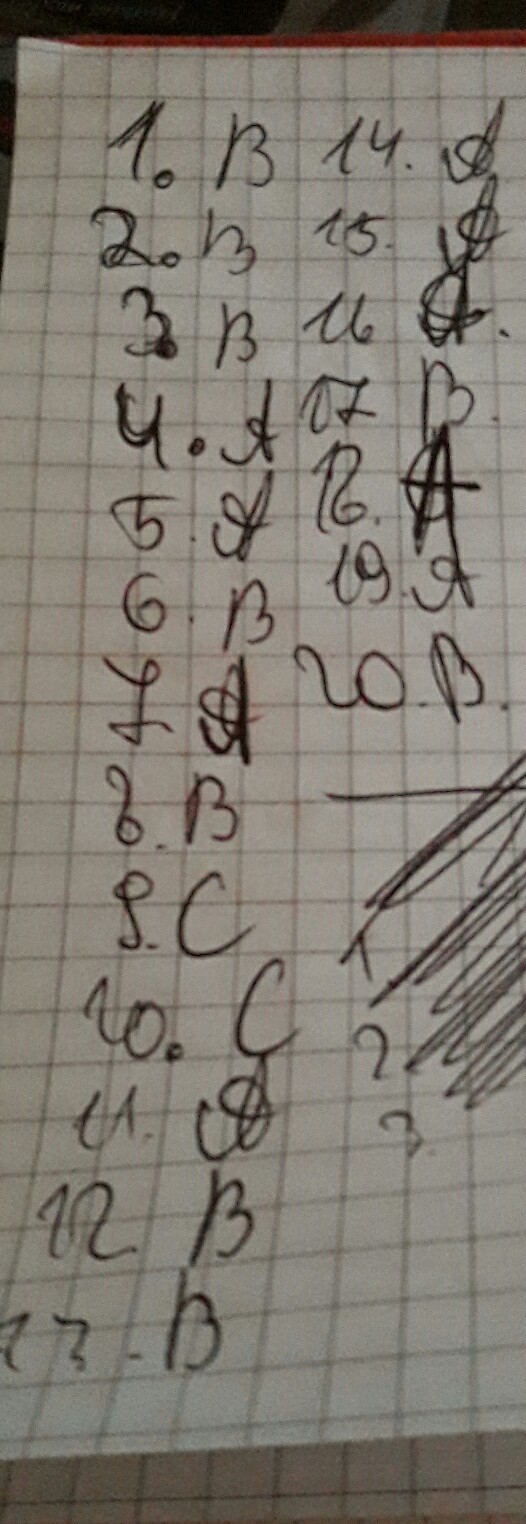 1. B
2. B
3. B
4. A
5. A
6. B
7 A
8. B
9. C
10. C
11. A
12 B
13. B
14. A
15. A
16 A.
17 B.
18. A
19. A
20. B.
1
2
3.